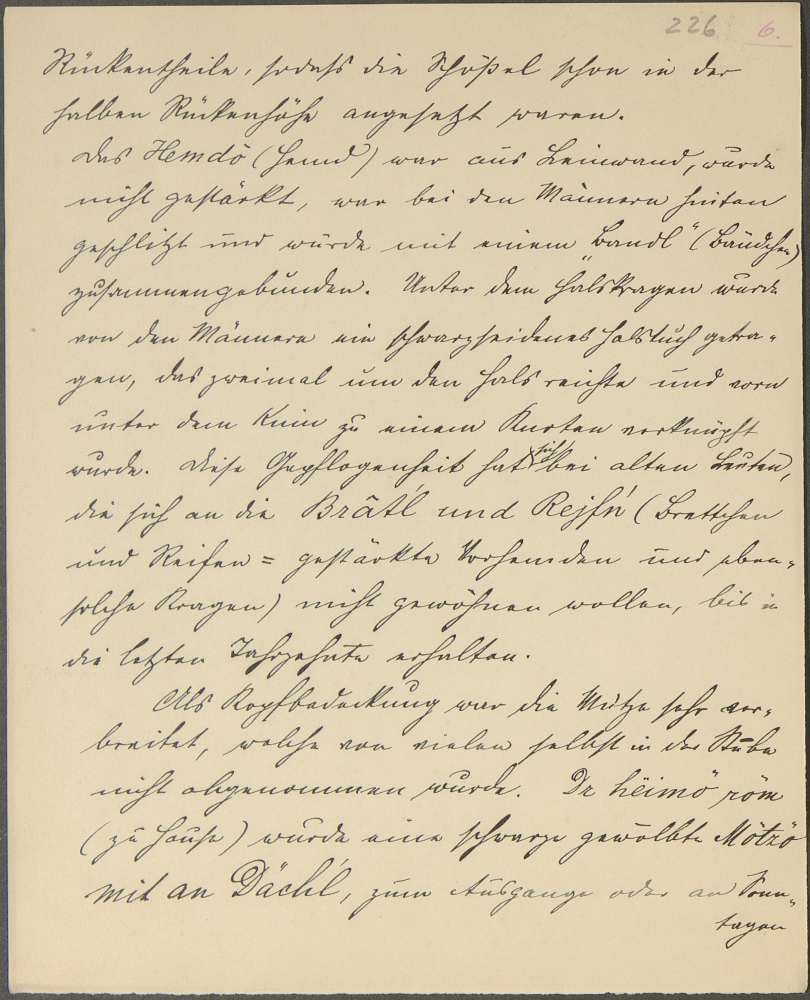 226 6.
Rückentheile, sodaß die Schößel schon in der
halben Rückenhöhe angesetzt waren.
Das Hemdö (Hemd) war aus Leinwand, wurde
nicht gestärkt, war bei den Männern hinten
geschlitzt und wurde mit einem „Bandl“ (Bändchen)
zusammengebunden. Unter dem Halskragen wurde
von den Männern ein schwarzseidenes Halstuch getra-
gen, das zweimal um den Hals reichte und vorn
unter dem Kinn zu einem Knoten verknüpft
wurde. Diese Gepflogenheit hat sich bei alten Leuten,
die sich an die Brâtl' und Rejfn' (Brettchen
und Reifen = gestärkte Vorhemden und eben-
solche Kragen) nicht gewöhnen wollen, bis in
die letzten Jahrzehnte erhalten.
Als Kopfbedeckung war die Mütze sehr ver-
breitet, welche von vielen selbst in der Stube
nicht abgenommen wurde. Dr hëimö röm
(zu Hause) wurde eine schwarze gewölbte Mötzö
mit an Dächl', zum Ausgange oder an Sonn-
tagen